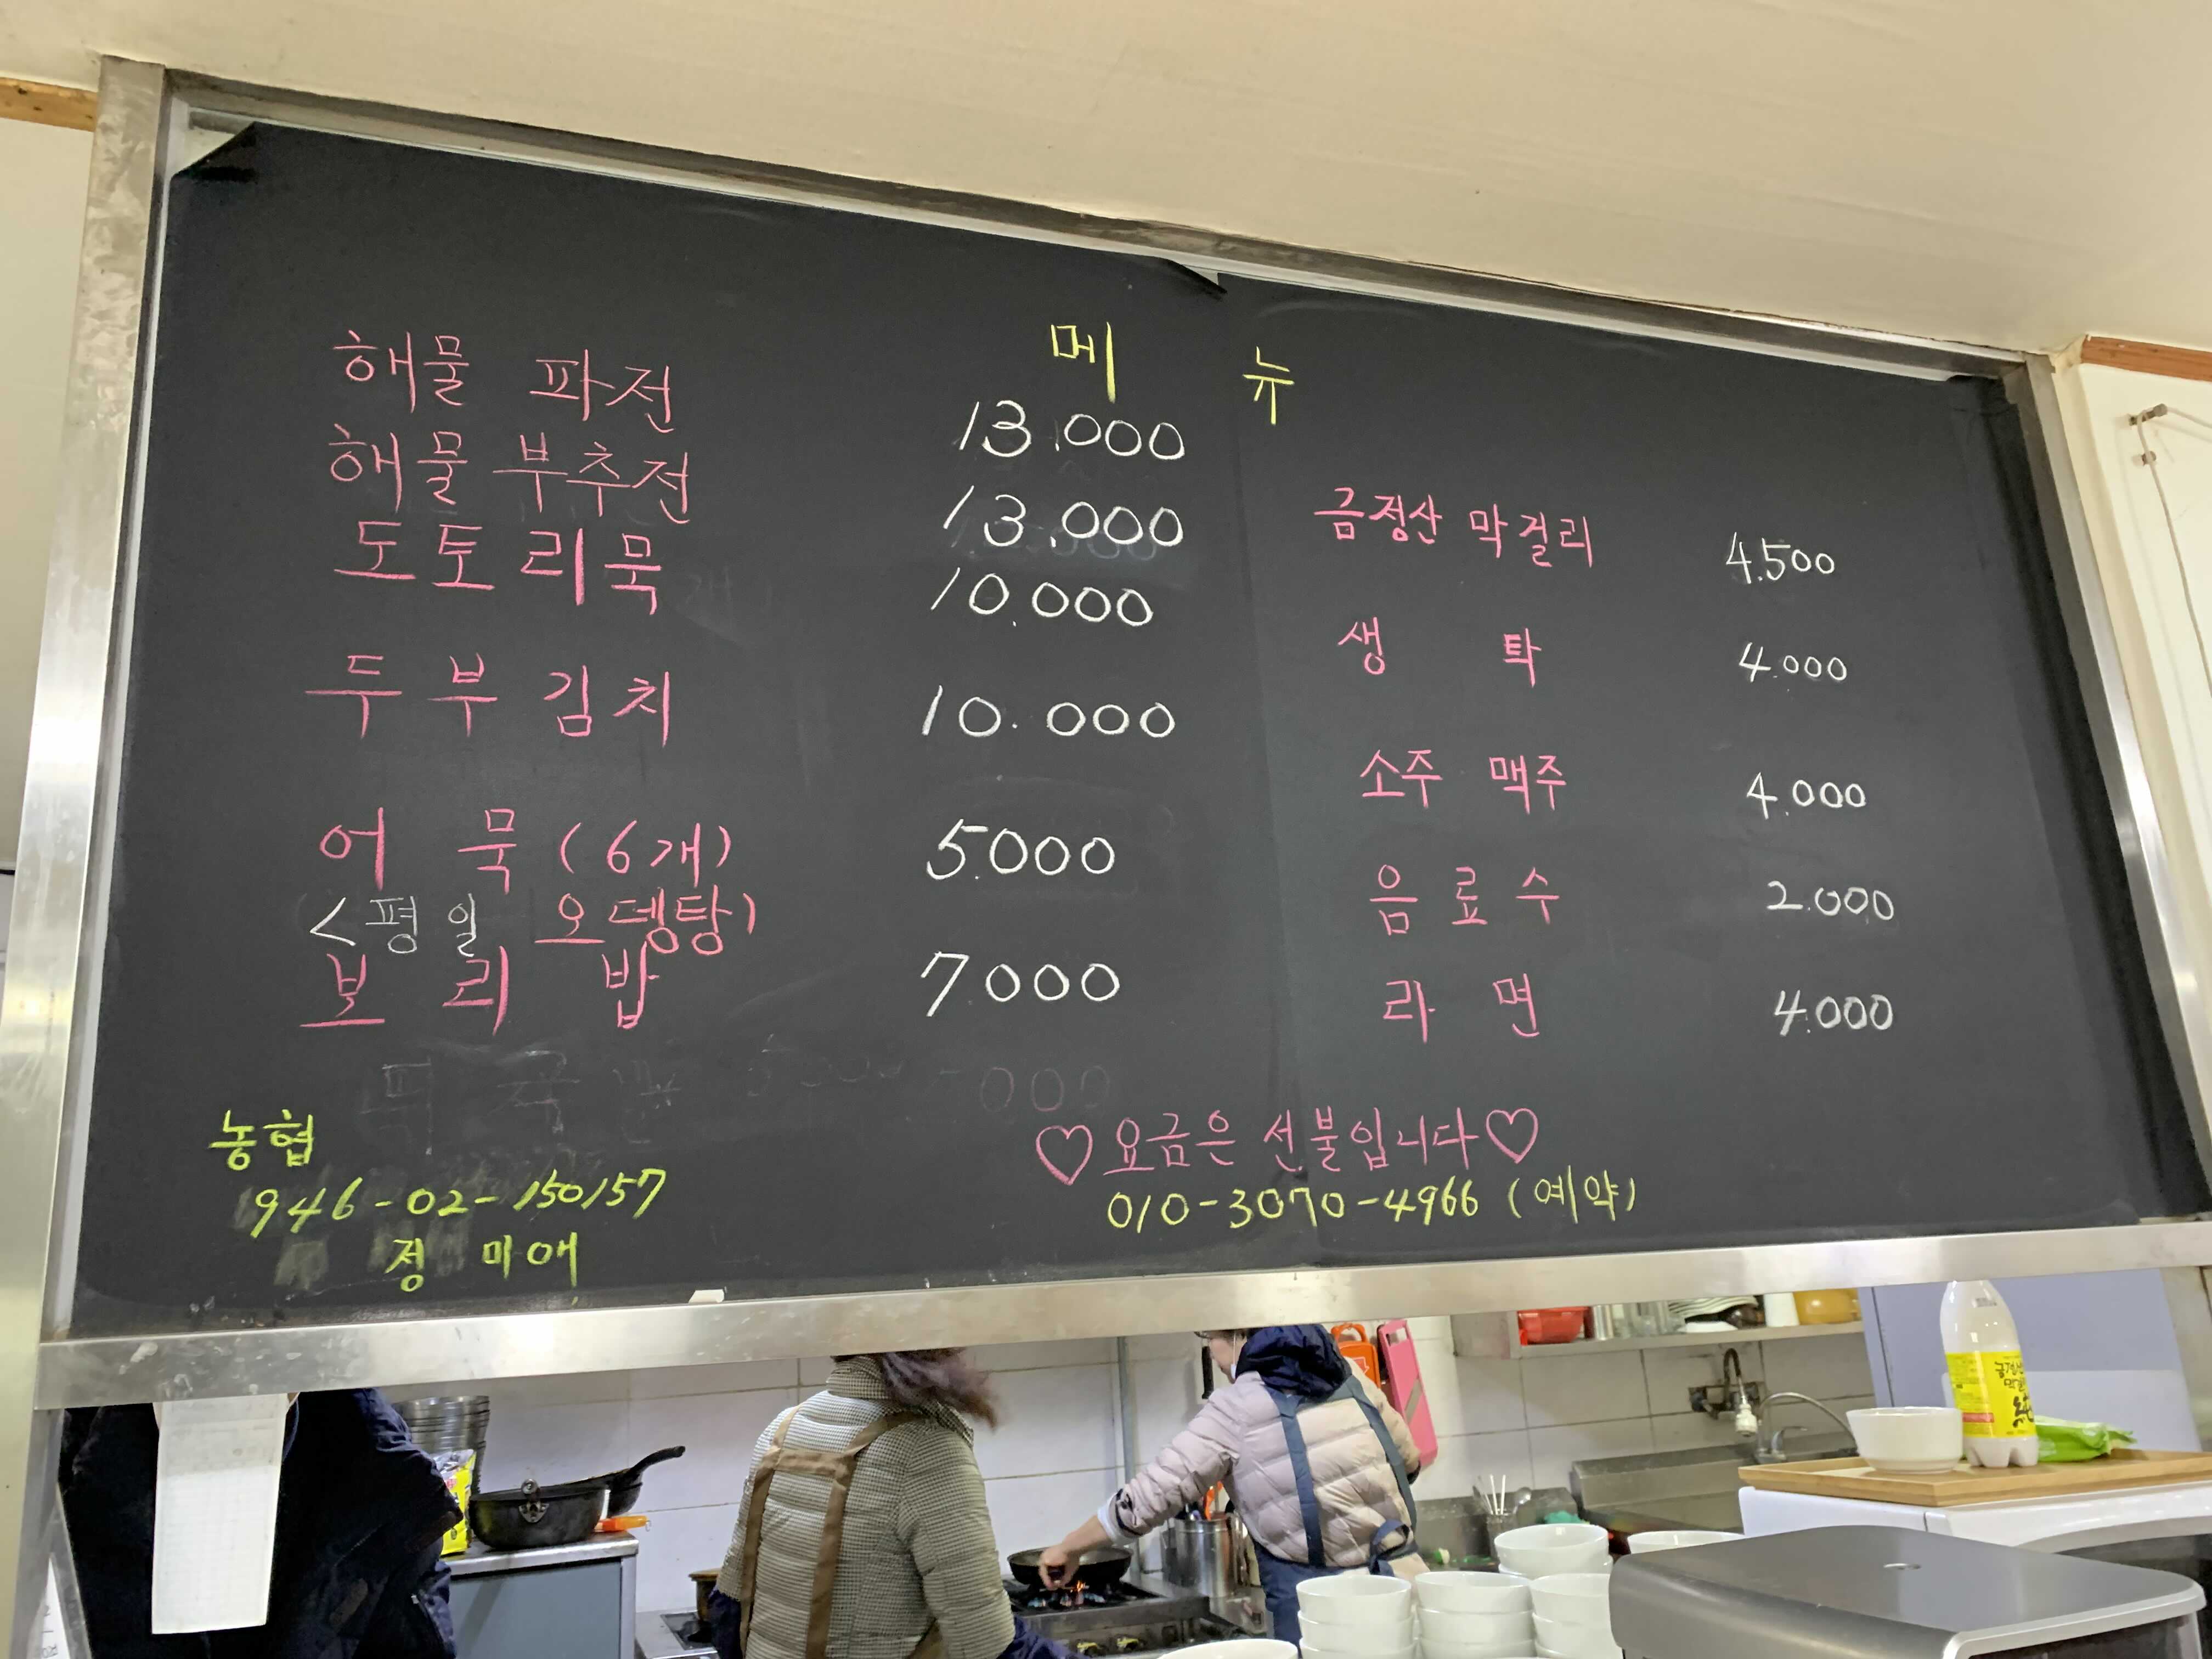 메 뉴
해물 파전 13.000
해물 부추전 13.000
도토리묵 10.000
두부김치 10.000
어 묵 (6개) 5000
<평일 오뎅탕)
보 리 밥 7000
금정산 막걸리 4.500
생 탁 4.000
소주 맥주 4.000
음 료 수 2.000
라 면 4.000
농협
946-02-150157
정 미애
♡요금은 선.불입니다♡
010-3070-4966 (예약)
금정산